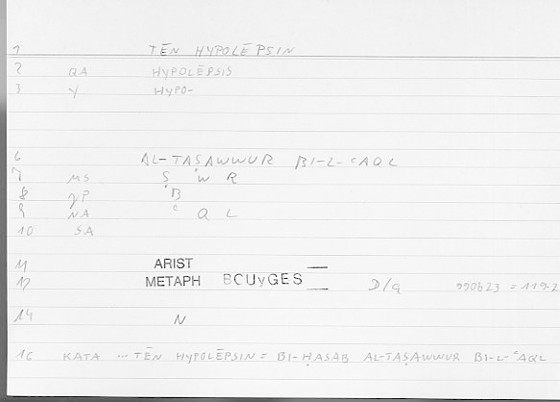 1 TĒN HYPOLĒPSIN
2 QA HYPOLĒPSIS
3 Y HYPO-
6 AL-TAṢAWWUR BI-L-ʿAQL
7 MS Ṣ W R
8 γP B
9 NA ʿ Q L
10 SA
11 ARIST
12 METAPH BCUγGES D/q 990b23 = 119.2
14 N
16 KATA ... TĒN HYPOLĒPSIN = BI-ḤASAB AL-TAṢAWWUR BI-L-ʿAQL